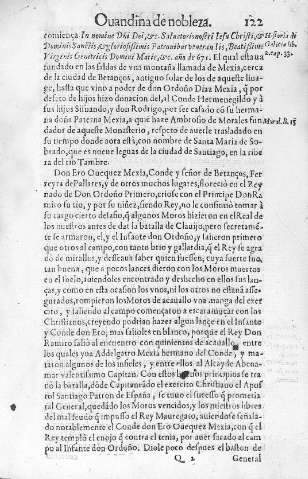 Quandina de nobleza. 122
comiença In nomine Dni Dei, &c. Saluatoris nostri Iesu Christi, &
Domini Sanctis, & gloriosissimis Patronibus Beatissimæ
Virginis Genitricis Domini Mariæ, &c. año de 671. El qual estaua
fundado en las faldas de vna montaña llamada de Mexia, cerca
de la ciudad de Betanços, antiguo solar de los de aquese lina-
ge, hasta que vino a poder de don Ordoño Diaz Mexia, q̃ por
defeto de hijos hizo donacion del, al Conde Hermenegildo y à
sus hijos Situando, y don Rodrigo, por ser casado có su herma-
na doña Paterna Mexia, a que haze Ambrosio de Morales fun-
dador de aqueste Monesterio, respeto de auerle trasladado en
su tiempo donde aora està, con nombre de Santa Maria de So-
brado, que es nueue leguas de la ciudad de Santiago, en la ribe-
ra del rio Tambre.
Don Ero Ouequez Mexia, Conde y señor de Betanços, Fe-
rreyra de Pallares, y de otros muchos lugares, floreciò en el Rey
nado de Don Ordoño Primero, triose con el Principe Don Ra-
miro su tio, y por su niñez, siendo Rey, no le consintiò tomar à
su cargo cierto desafio, q̃ algunos Moros hizieron en el Real de
los nuestros antes de dar la batalla de Clauijo, pero secretamé-
te se armaron, el, y el Infante don Ordoño, y salieron primero
que otros al campo, con tanto brio y gallardia, q̃ el Rey se agra
dò de mirallos, y deseaua saber quien fuessen, cuya suerte fue
tan buena, que a pocos lances dieron con los Moros muertos
en el suelo, auiendoles encontrado y deshecho en ellos sus lan-
ças, y como en esta ocasion los vnos, ni los otros no estauā asse-
gurados, rompieron los Moros de acauallo vna manga del exer
cito, y saliendo al campo començaron a escaramuçar con los
Christianos, creyendo podrian hazer algun lançe en el Infante
y Conde don Ero, mas salioles en blanco, porque el Rey Don
Ramiro saliò al encuentro con quinientos de acauallo entre
los quales yua Addelgatro Mexia hermano del Conde, y ma-
taron algunos de los infieles, y entre ellos al Alcayde Abena-
mar valentissimo Capitan. Con estos buenos principios se tra
nò la batalla, dōde Capitaneādo el exercito Christiano el Apos
tol Santiago Patron de España, se tuuo el sucesso q̃ prometia
tal General, quedādo los Moros vencidos, y los nuestros libres
del mal feudo q̃ impuso el Rey Mauregato, auiendose señala-
do notablemente el Conde don Ero Ouequez Mexia, con q̃ el
Rey templò el enojo q̃ contra el tenia, por auer sacado al cam
po al Infante don Ordoño. Diole poco despues el baston de
Q 2 General